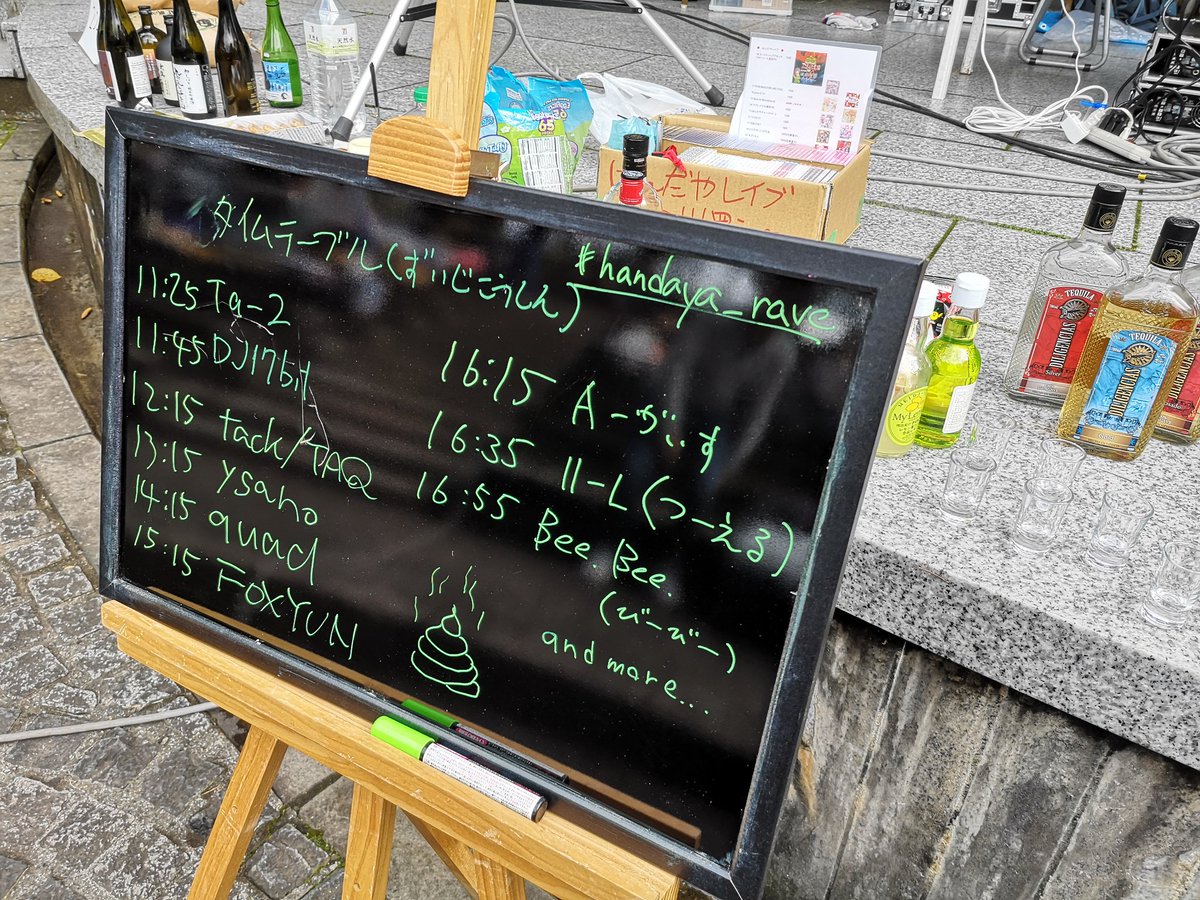 タイムテーブル(ずいじこうしん)
#handaya_rave
11:25 Ta-2
11:45 DJ17bit
12:15 tack/TAQ
13:15 ysano
14:15 quad
15:15 FOXYUN
16:15 A-ずいす
16:35 11-L(つーえる)
16:55 Bee.Bee.
(びーびー)
and more...
はんだやレイブ
TEQUILA
DILIGENCIAS
Silver
TEQUILA
DILIGENCIAS